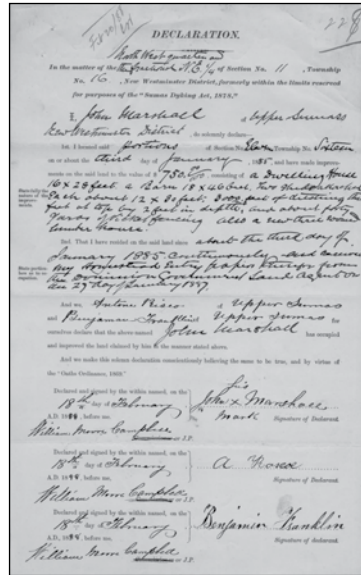 228
DECLARATION.
North West quarter and
In the matter of the fractional N.E. 1/4 of Section No. 11, Township
No. 16, New Westminster District, formerly within the limits reserved
for purposes of the "Sumas Dyking Act, 1878."
I, John Marshall of Upper Sumass
New Westminster District, do solemnly declare—
1st. I located said portions of Section No. Eleven Township No. Sixteen
on or about the third day of January 1885, and have made improve-
ments on the said land to the value of $750, consisting of a Dwelling House
16 x 28 feet, a Barn 18 x 40 feet, Two Sheds
Each about 12 x 30 feet, 3000 feet of ditching
feet at top by 2 feet in depth, and about forty
fencing also a new
lumber house.
2nd. That I have resided on the said land since about the third day of
January 1885 continuously and received
my Homestead Entry paper therefor from
the Dominion Government Land Agent on
the 27 day of January 1887.
And we, Antone of Upper Sumas
and Benjamin Franklin of Upper Sumas for
ourselves declare that the above named John Marshall has occupied
and improved the land claimed by him in the manner stated above.
And we make this solemn declaration conscientiously believing the same to be true, and by virtue
of the "Oaths Ordinance, 1869."
Declared and signed by the within named, on the
18th day of February
A.D. 1888, before me,
William Moore Campbell
J.P.
his
John x Marshall
mark
Signature of Declarant.
Declared and signed by the within named, on the
18th day of February
A.D. 1888, before me,
William Moore Campbell
J.P.
A
Signature of Declarant.
Declared and signed by the within named, on the
18th day of February
A.D. 1888, before me,
William Moore Campbell
J.P.
Benjamin Franklin
Signature of Declarant.